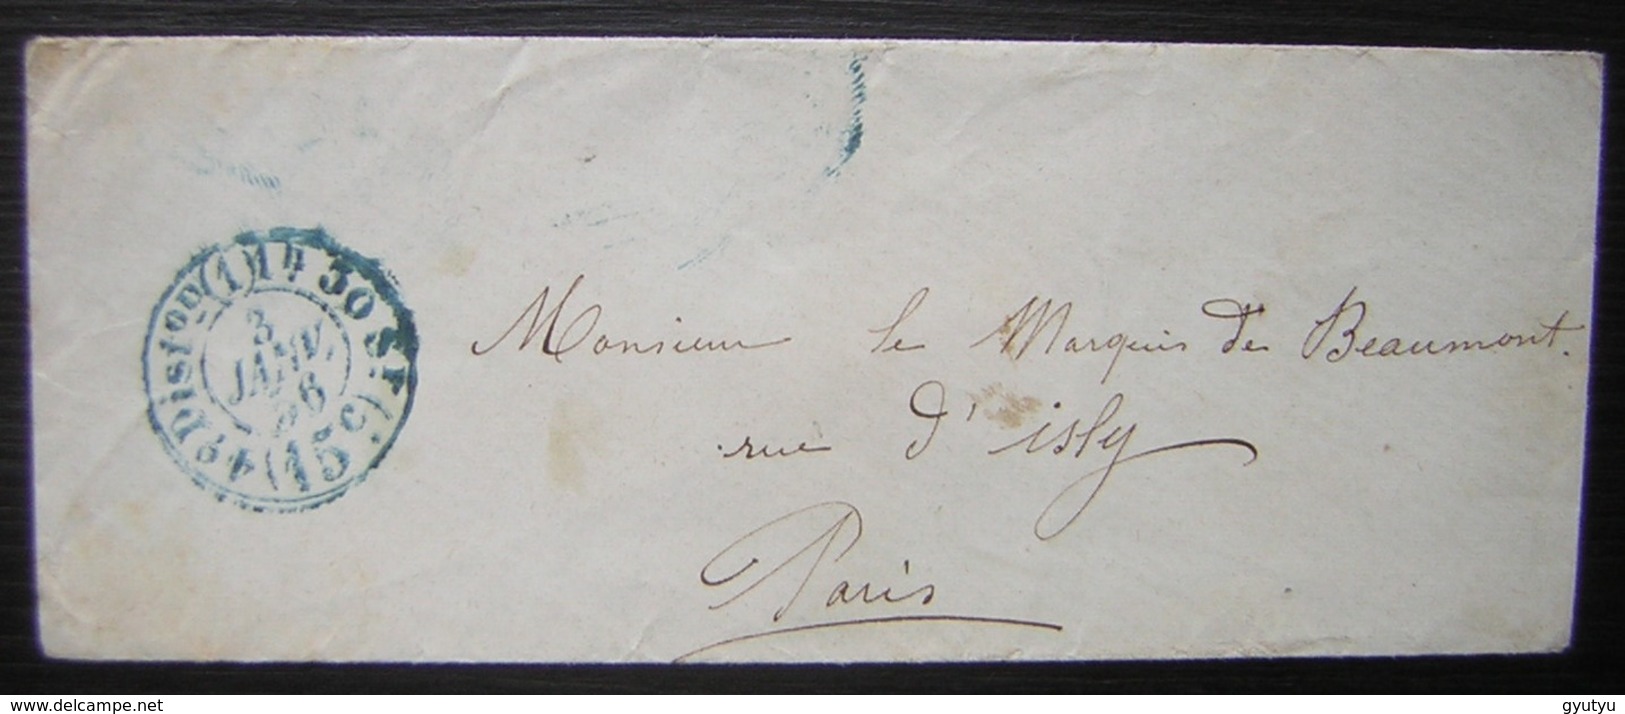 (1) 1 h 30 S
3
JANV.
(15c)
Monsieur le Marquis de Beaumont.
rue d'isly
Paris
delcampe.net
gyutyu